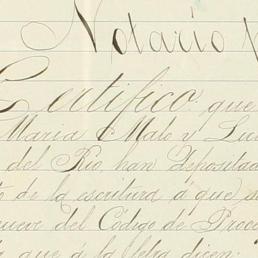 Notario p
Certifico que
Maria O Malo y Lu
del Rio, han depositad
to de la escritura á que s
nueve del Código de Proce
que á la letra dicen: